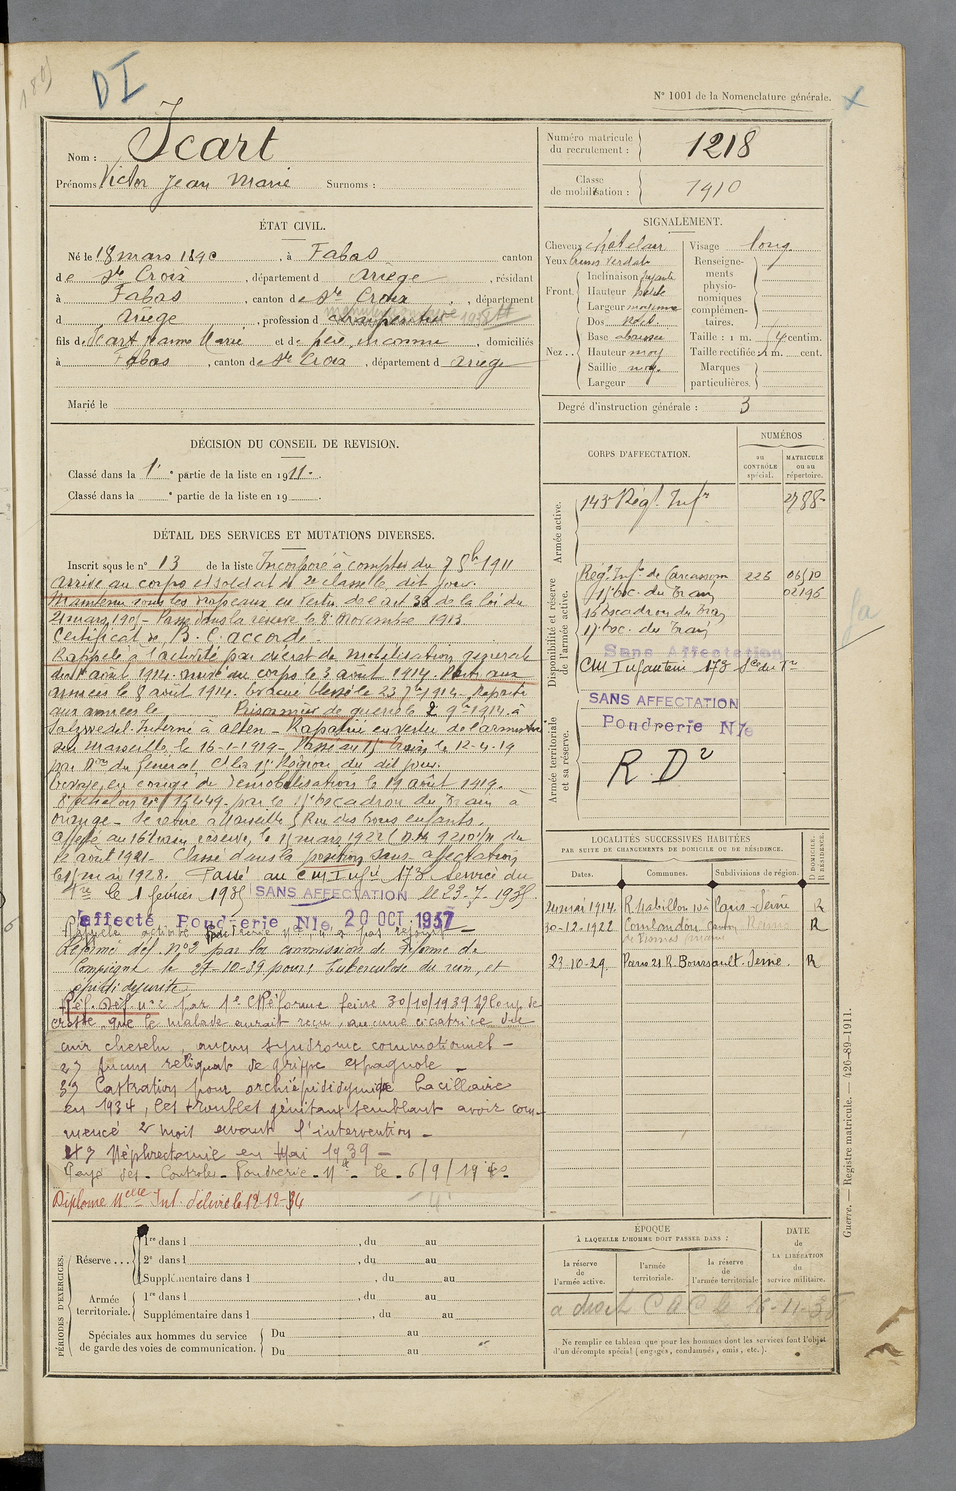 DI
N° 1001 de la Nomenclature générale.
Nom : Icart
Prénoms Victor Jean Marie Surnoms :
Numéro matricule du recrutement : 1218
Classe de mobilisation : 1910
ÉTAT CIVIL.
Né le 18 mars 1890, à Fabas canton
de Ste Croix, département d Ariège, résidant
à Fabas, canton de Ste Croix, département
d Ariège, profession d charpentier
fils de Icart Jeanne Marie et de père inconnu, domiciliés
à Fabas, canton de Ste Croix, département d Ariège
Marié le
SIGNALEMENT.
Cheveux chatclair
Yeux verdat
Front. Inclinaison fuyante
Hauteur petite
Largeur moyenne
Nez . . Dos
Base abaissée
Hauteur moy
Saillie moy
Largeur
Visage long
Renseignements physionomiques complémentaires.
Taille : 1 m. centim.
Taille rectifiée 1 m. cent.
Marques particulières.
Degré d'instruction générale : 3
DÉCISION DU CONSEIL DE REVISION.
Classé dans la 1e partie de la liste en 1911.
Classé dans la e partie de la liste en 19
DÉTAIL DES SERVICES ET MUTATIONS DIVERSES.
Inscrit sous le n° 13 de la liste Incorporé à compter du 7 8bre 1911
arrivé au corps et soldat de 2e classe le dit jour.
Maintenu sous les drapeaux en vertu de l'art 33 de la loi du
21 mars 1905 - Passé dans la réserve le 8 Novembre 1913
Certificat de B. C. accordé.
Rappelé à l'activité par décret de mobilisation générale
du 1er août 1914. Arrivé au corps le 3 août 1914. Parti aux
armées le 8 août 1914. Evacué blessé le 23 1914. Reparti
aux armées le Prisonnier de guerre le 2 9bre 1914 à
Salzwedel. Interné à alten - Rapatrié en vertu de l'armistice
sur Marseille, le 16-1-1919 - Passé au 15e Train le 12-4-19
par Don du Général Ct la 15e Région du dit jour.
Envoyé en congé de Démobilisation le 19 août 1919.
8e échelon n° 15449 - par le 15e Escadron du Train à
Orange - Se retire à Marseille 5 Rue des Trois enfants.
Affecté au 16e train, réserve, le 15 mars 1922 du
12 août 1921 - Classé dans la position sans affectation
le 1er mai 1928. Passé au CM Infie 173 Service du
Tn le 1 février 1935 SANS AFFECTATION le 23-7-1935
affecté Poudrerie Nle 20 OCT 1937
Réformé déf. N°2 par la commission de réforme de
Compiègne le 27-10-39 pour : Tuberculose du rein, et
épididymite
Réf. Déf. n°2 par 1e C Réforme Seine 30/10/1939 1) Coup de
crosse que le malade aurait reçu, aucune cicatrice du
cuir chevelu, aucun syndrome commotionnel -
2) Aucun reliquat de grippe espagnole -
3) Castration pour orchiépididymite bacillaire
en 1934, les troubles génitaux semblant avoir com-
mencé 2 mois avant l'intervention -
4) Néphrectomie en Mai 1939 -
Rayé des Contrôles - Poudrerie - Nle - le - 6/9/19
Diplome Int. délivré le 12-12-34
CORPS D'AFFECTATION.
NUMÉROS
au CONTRÔLE spécial.
MATRICULE ou au répertoire.
Armée active.
143e Régt Infie 2788
Disponibilité et réserve de l'armée active.
Régt Infie de Carcassonne 226 06510
15e Esc. du Train 02196
16e Escadron du Train
15e Esc. du Train
Sans Affectation
CM Infanterie 173 Sce du Tn
Armée territoriale et sa réserve.
SANS AFFECTATION
Poudrerie Nle
R. D 2
LOCALITÉS SUCCESSIVES HABITÉES
PAR SUITE DE CHANGEMENTS DE DOMICILE OU DE RÉSIDENCE.
Dates. Communes. Subdivisions de région. D DOMICILE. R RÉSIDENCE.
24 mai 1914. R. Mabillon 10 à Paris - Seine R
30-12-1922 Coulandon canton R
23-10-29. Paris 21 R. Boursault. Seine. R
Guerre. — Registre matricule. — 426-89-1911.
PÉRIODES D'EXERCICES.
Réserve . . . 1re dans l , du au
2e dans l , du au
Supplémentaire dans l , du au
Armée territoriale. 1re dans l , du au
Supplémentaire dans l , du au
Spéciales aux hommes du service de garde des voies de communication. Du au
Du au
ÉPOQUE
À LAQUELLE L'HOMME DOIT PASSER DANS :
la réserve de l'armée active.
l'armée territoriale.
la réserve de l'armée territoriale
DATE de LA LIBÉRATION du service militaire.
a droit C du C le 16-11-35
Ne remplir ce tableau que pour les hommes dont les services font l'objet
d'un décompte spécial (engagés, condamnés, omis, etc.).